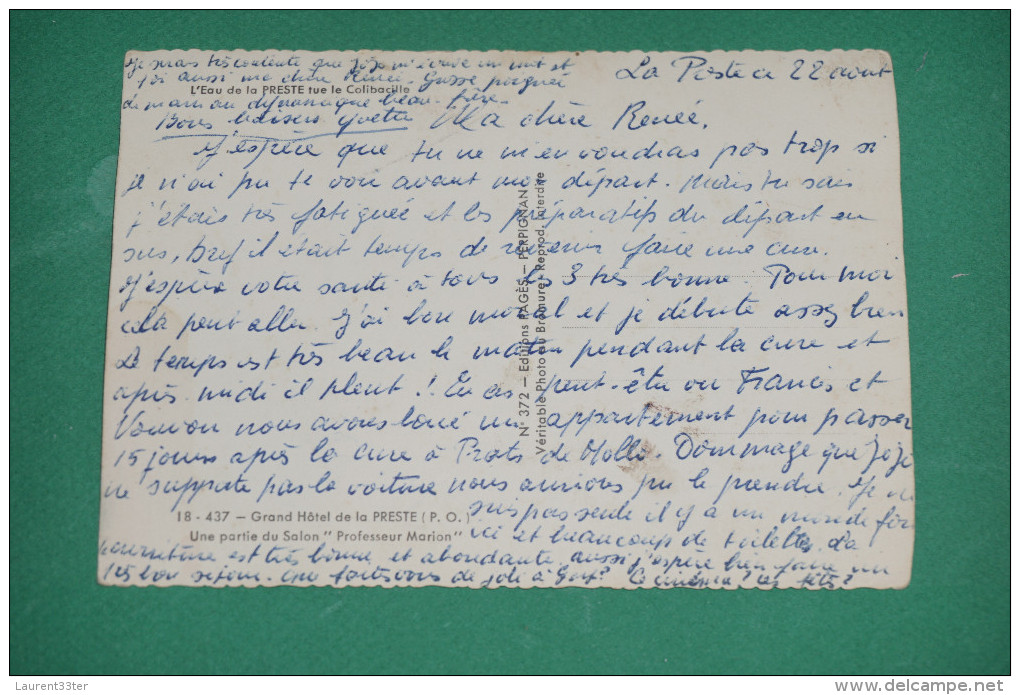 La Preste ce 22 aout
Ma chère Renée,
J'espère que tu ne m'en voudras pas trop si
je n'ai pu te voir avant mon départ. Mais tu sais
j'étais très fatiguée et les préparatifs du départ en
sus, bref il était temps de revenir faire une cure.
J'espère votre santé à tous les 3 très bonne. Pour moi
cela peut aller J'ai bon moral et je débute assez bien
Le temps est très beau le matin pendant la cure et
après midi il pleut !! En cas peut-être ou Francis et
nous avons loué un appartement pour passer
15 jours après la cure à Prats de Mollo. Dommage que Jojo
ne supporte pas la voiture nous aurions pu le prendre. Je ne
suis pas seule il y a un monde fou
ici et beaucoup de toilettes. La
nourriture est très bonne et abondante, aussi j'espère bien faire un
très bon séjour. Que faites vous de joli à ? Le cinéma ? Les fêtes ?
Je serais très contente que Jojo m'écrive un mot et
toi aussi ma chère Renée. Grosse poignée
de main au beau-frère.
Bons baisers
L'Eau de la PRESTE tue le Colibacille
N° 372 — Editions PAGÈS — PERPIGNAN
Véritable Photo au Bromure - Reprod. interdite
18 - 437 — Grand Hôtel de la PRESTE (P. O.)
Une partie du Salon " Professeur Marion "
Laurent33ter
http://www.delcampe.net